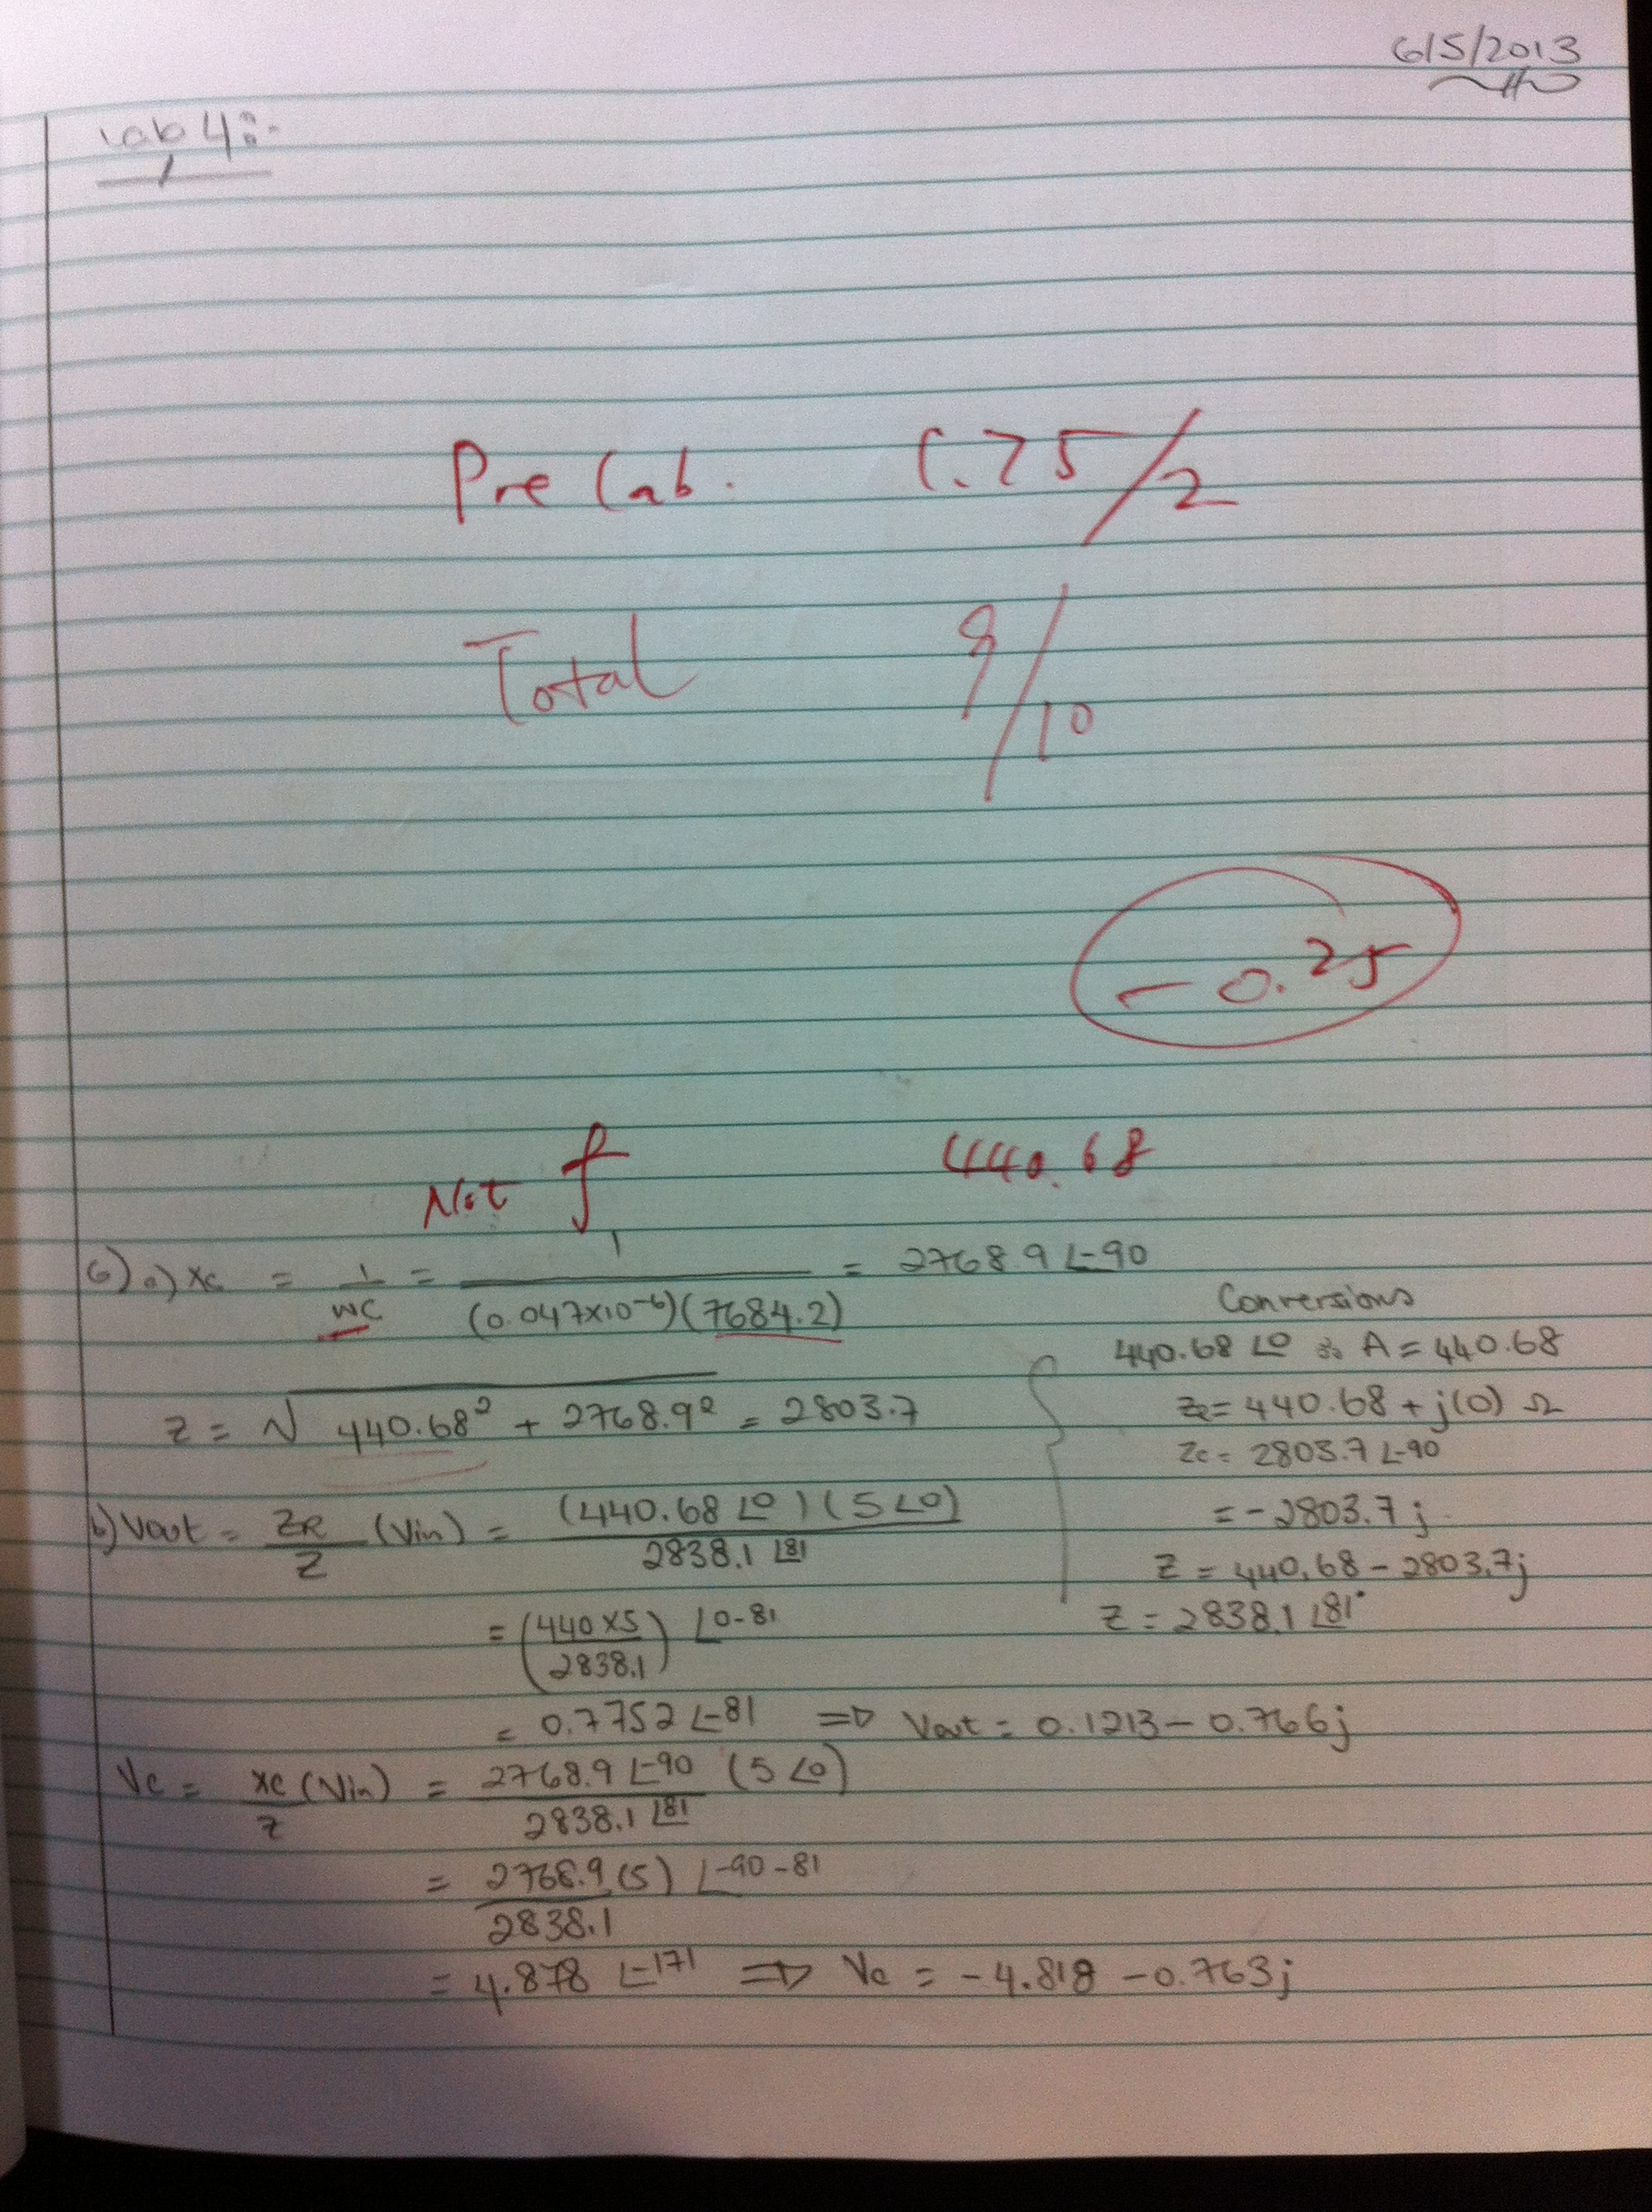 6/5/2013
lab 4:-
Pre lab. 1.75/2
Total 9/10
-0.25
Not f 440.68
6) a) Xc = 1/wc = 1/(0.047x10^-6)(7684.2) = 2768.9 ∠-90
Z = √440.68² + 2768.9² = 2803.7
b) Vout = ZR/Z (Vin) = (440.68 ∠0)(5∠0)/2838.1 ∠81
= (440x5/2838.1) ∠0-81
= 0.7752 ∠-81 ⇒ Vout = 0.1213 - 0.766j
Vc = xc/z (Vin) = 2768.9 ∠-90 (5∠0)/2838.1 ∠81
= 2768.9(5)/2838.1 ∠-90-81
= 4.878 ∠-171 ⇒ Vc = -4.818 - 0.763j
Conversions
440.68 ∠0 ∴ A = 440.68
ZR = 440.68 + j(0) Ω
Zc = 2803.7 ∠-90
= -2803.7j
Z = 440.68 - 2803.7j
Z = 2838.1 ∠81°